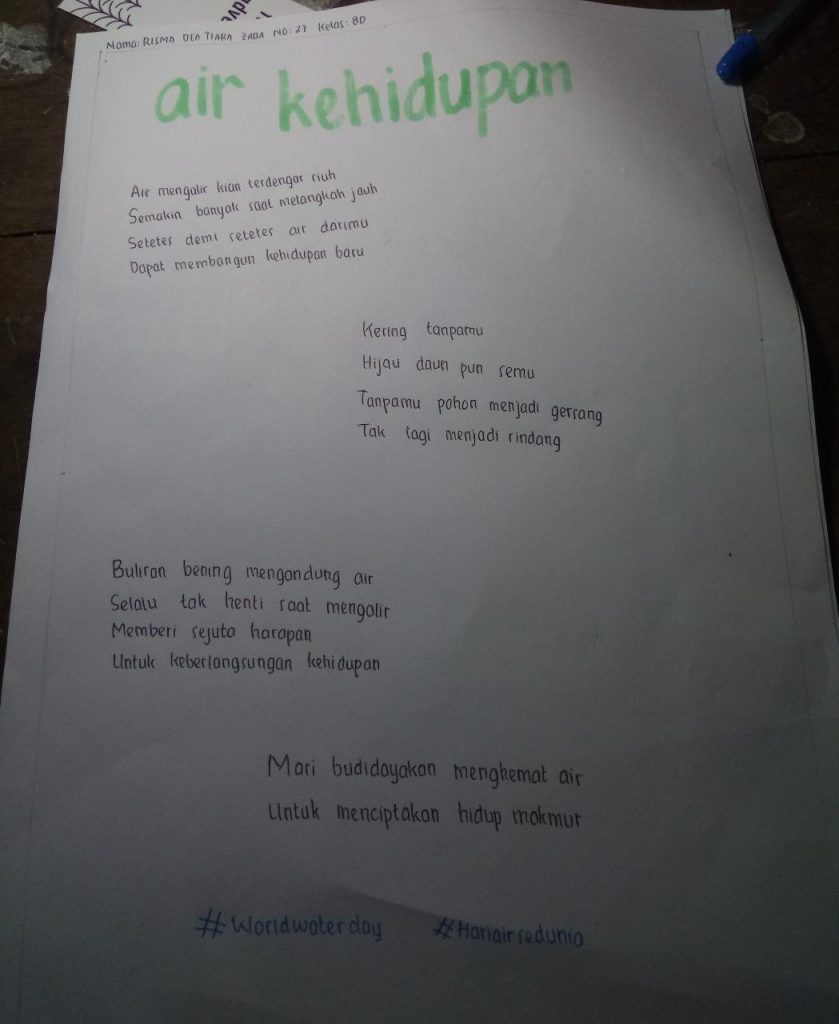 Nama: RISMA DEA TIARA ZADA NO: 27 Kelas: 8D
air kehidupan
Air mengalir kian terdengar riuh
Semakin banyak saat melangkah jauh
Setetes demi setetes air darimu
Dapat membangun kehidupan baru
Kering tanpamu
Hijau daun pun semu
Tanpamu pohon menjadi gersang
Tak lagi menjadi rindang
Buliran bening mengandung air
Selalu tak henti saat mengalir
Memberi sejuta harapan
Untuk keberlangsungan kehidupan
Mari budidayakan menghemat air
Untuk menciptakan hidup makmur
#Worldwaterday #Hariairsedunia